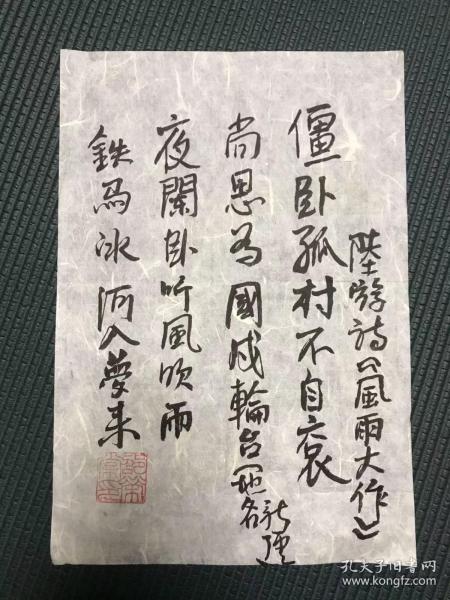 陸游詩《風雨大作》
僵卧孤村不自哀
尚思为國戍輪台(地名新疆)
夜闌卧听風吹雨
鉄馬冰河入夢来
孔夫子旧书网
www.kongfz.com